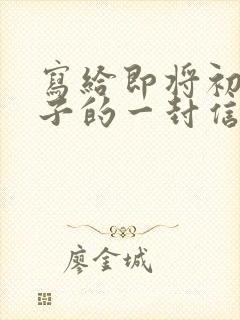 寫給即将初
子的一封信
廖金城